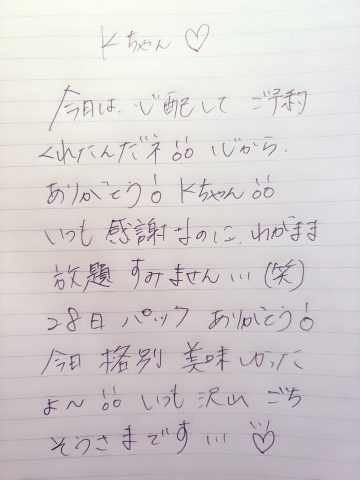 Kちゃん♡
今日は、心配して、ご予約
くれたんだネ!! 心から、
ありがとう! Kちゃん!!
いつも 感謝なのに、わがまま
放題 すみません…(笑)
28日 パック ありがとう!
今日 格別 美味しかった
よ〜!! いつも 沢山 ごち
そうさまです…♡